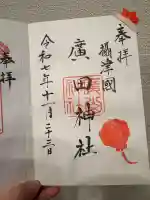 奉拝
攝津國
廣田神社
令和七年十一月二十三日
奉拝